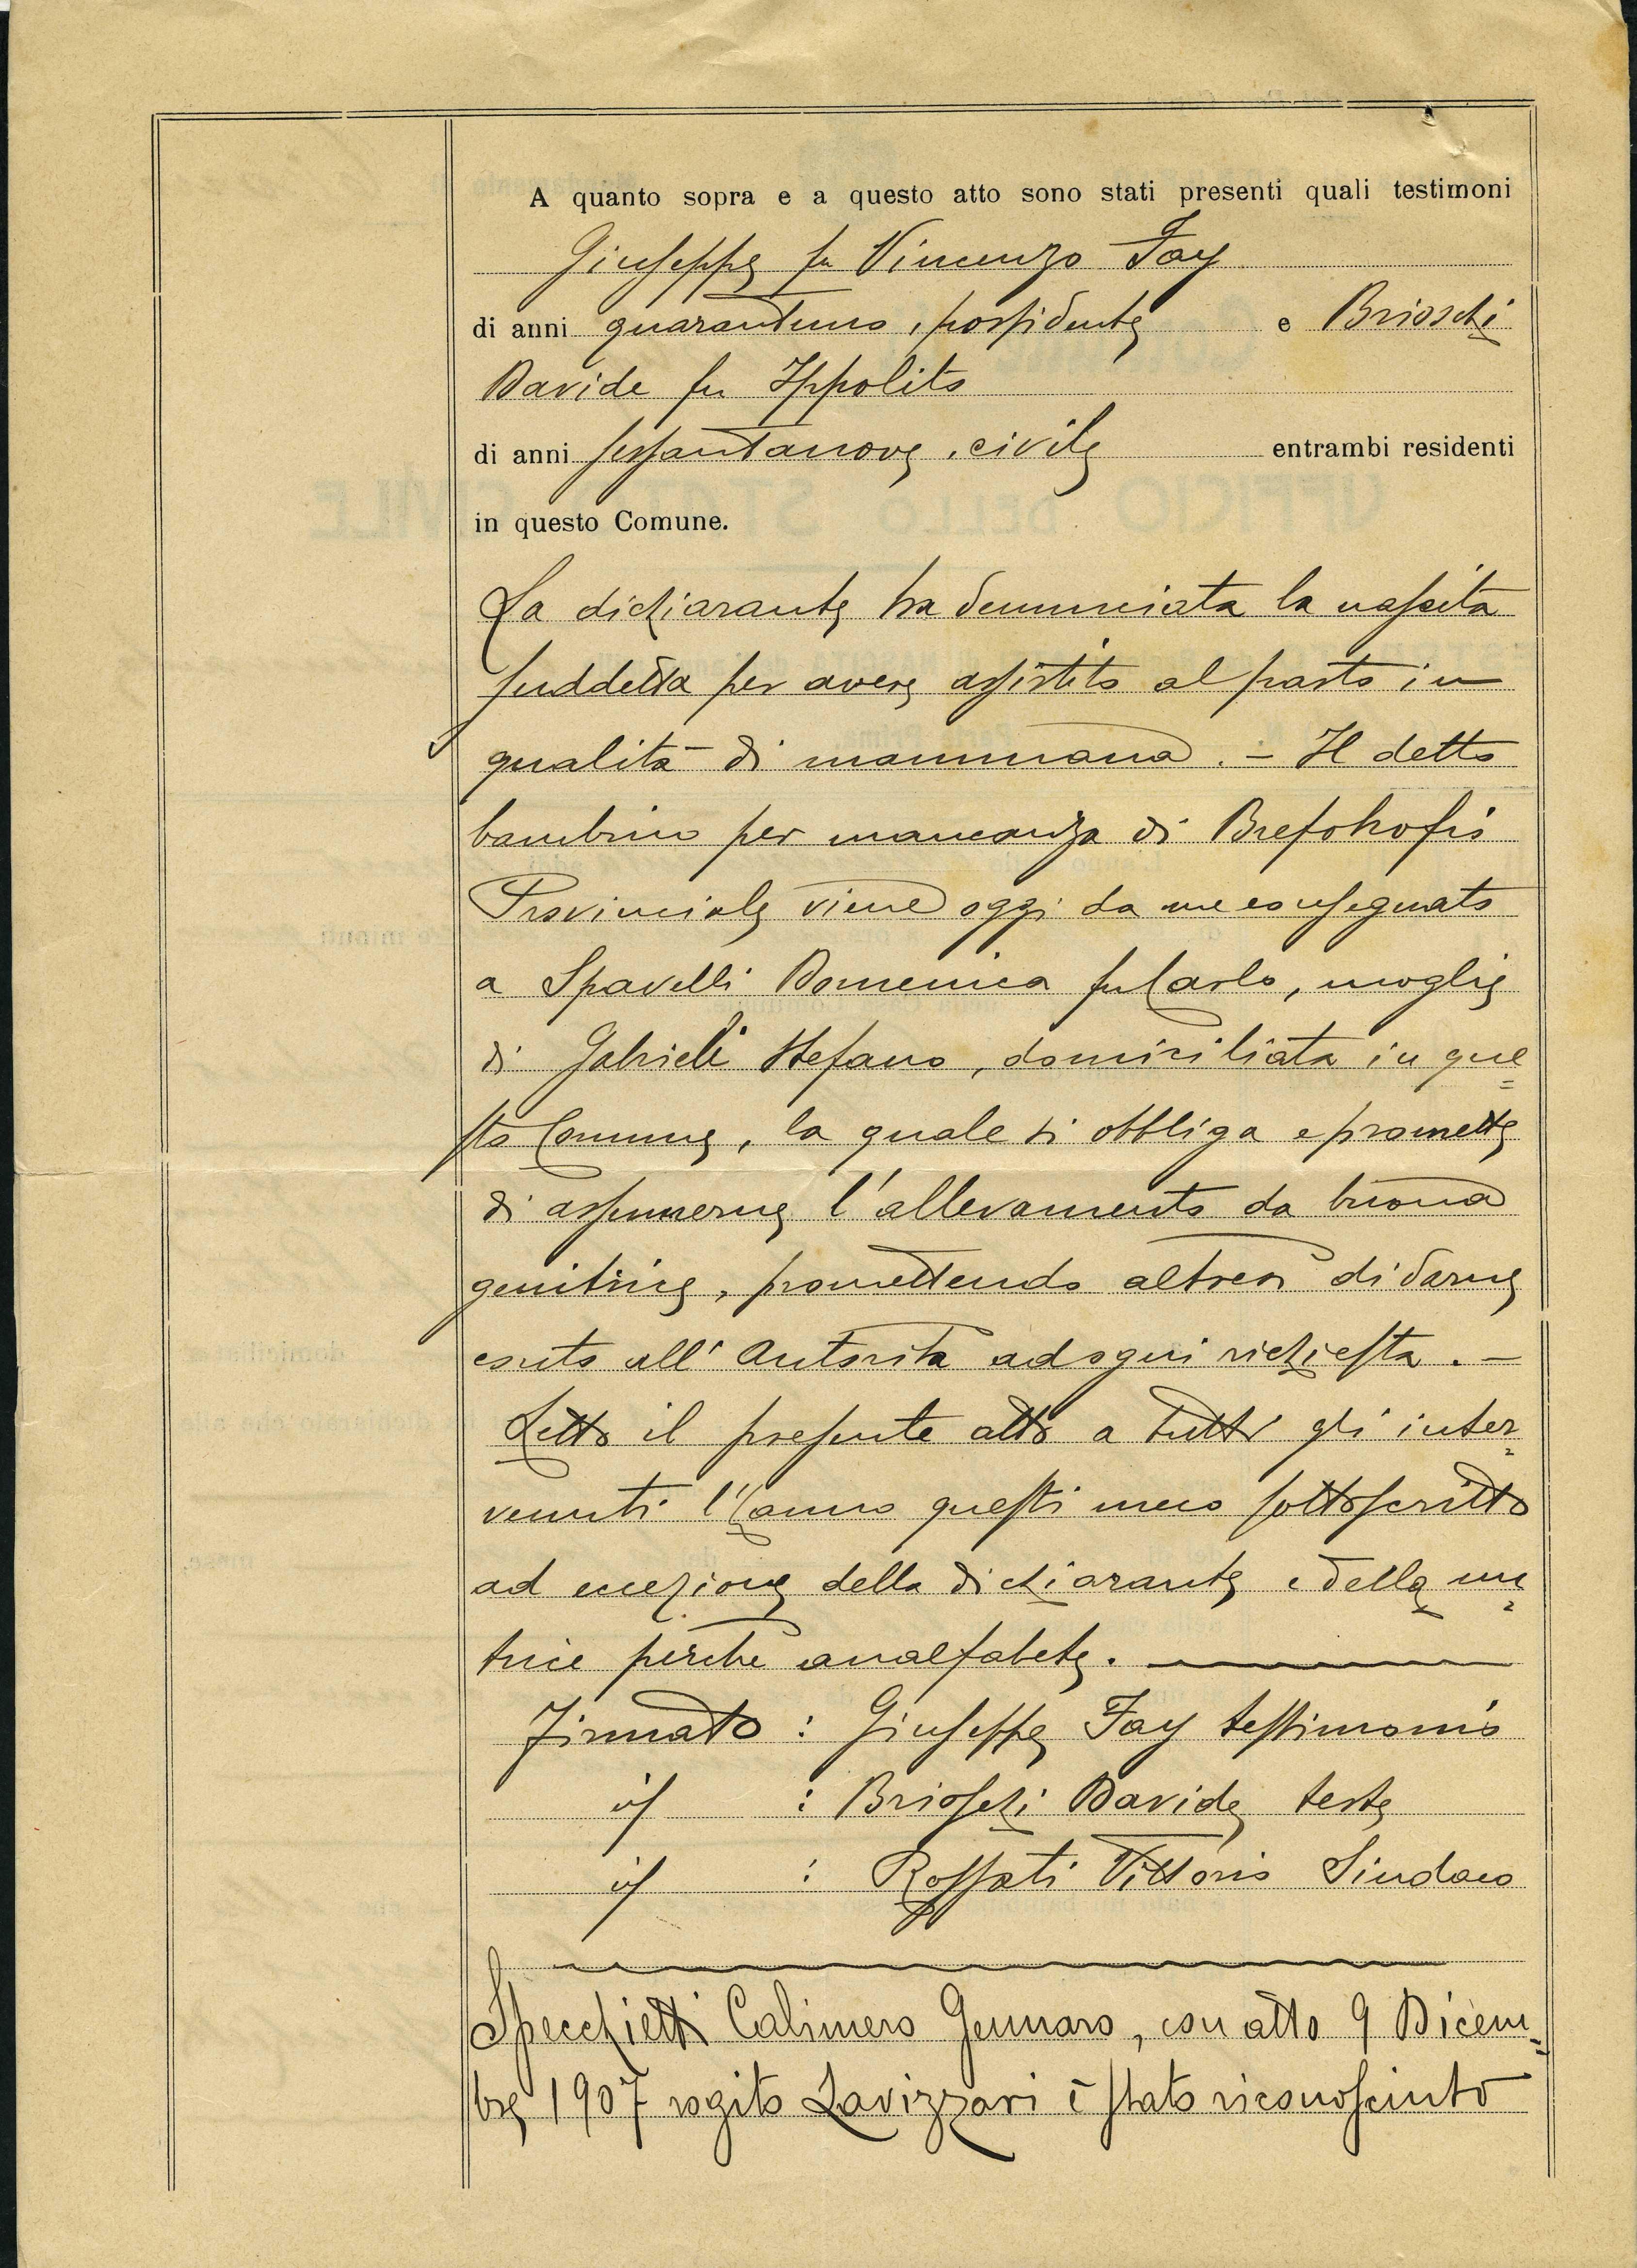 A quanto sopra e a questo atto sono stati presenti quali testimoni
Giuseppe fu Vincenzo Fay
di anni quarantuno, possidente e Brioschi
Davide fu Ippolito
di anni sessantanove, civile entrambi residenti
in questo Comune.
La dichiarante ha denunciata la nascita
suddetta per avere assistito al parto in
qualità di mammana. – Il detto
bambino per mancanza di Brefotrofio
Provinciale viene oggi da me consegnato
a Spavelli Domenica fu Carlo, moglie
di Gabrieli Stefano, domiciliata in que=
sto Comune, la quale si obbliga e promette
di assumerne l'allevamento da buona
genitrice, promettendo altresì di darne
conto all'Autorità ad ogni richiesta. –
Letto il presente atto a tutti gli inter=
venuti l'hanno questi meco sottoscritto
ad eccezione della dichiarante e della nu=
trice perchè analfabete.
Firmato : Giuseppe Fay testimonio
id : Brioschi Davide teste
id : Rossati Vittorio Sindaco
Specchietti Calimero Gennaro, con atto 9 Dicem=
bre 1907 rogito Lavizzari è stato riconosciuto